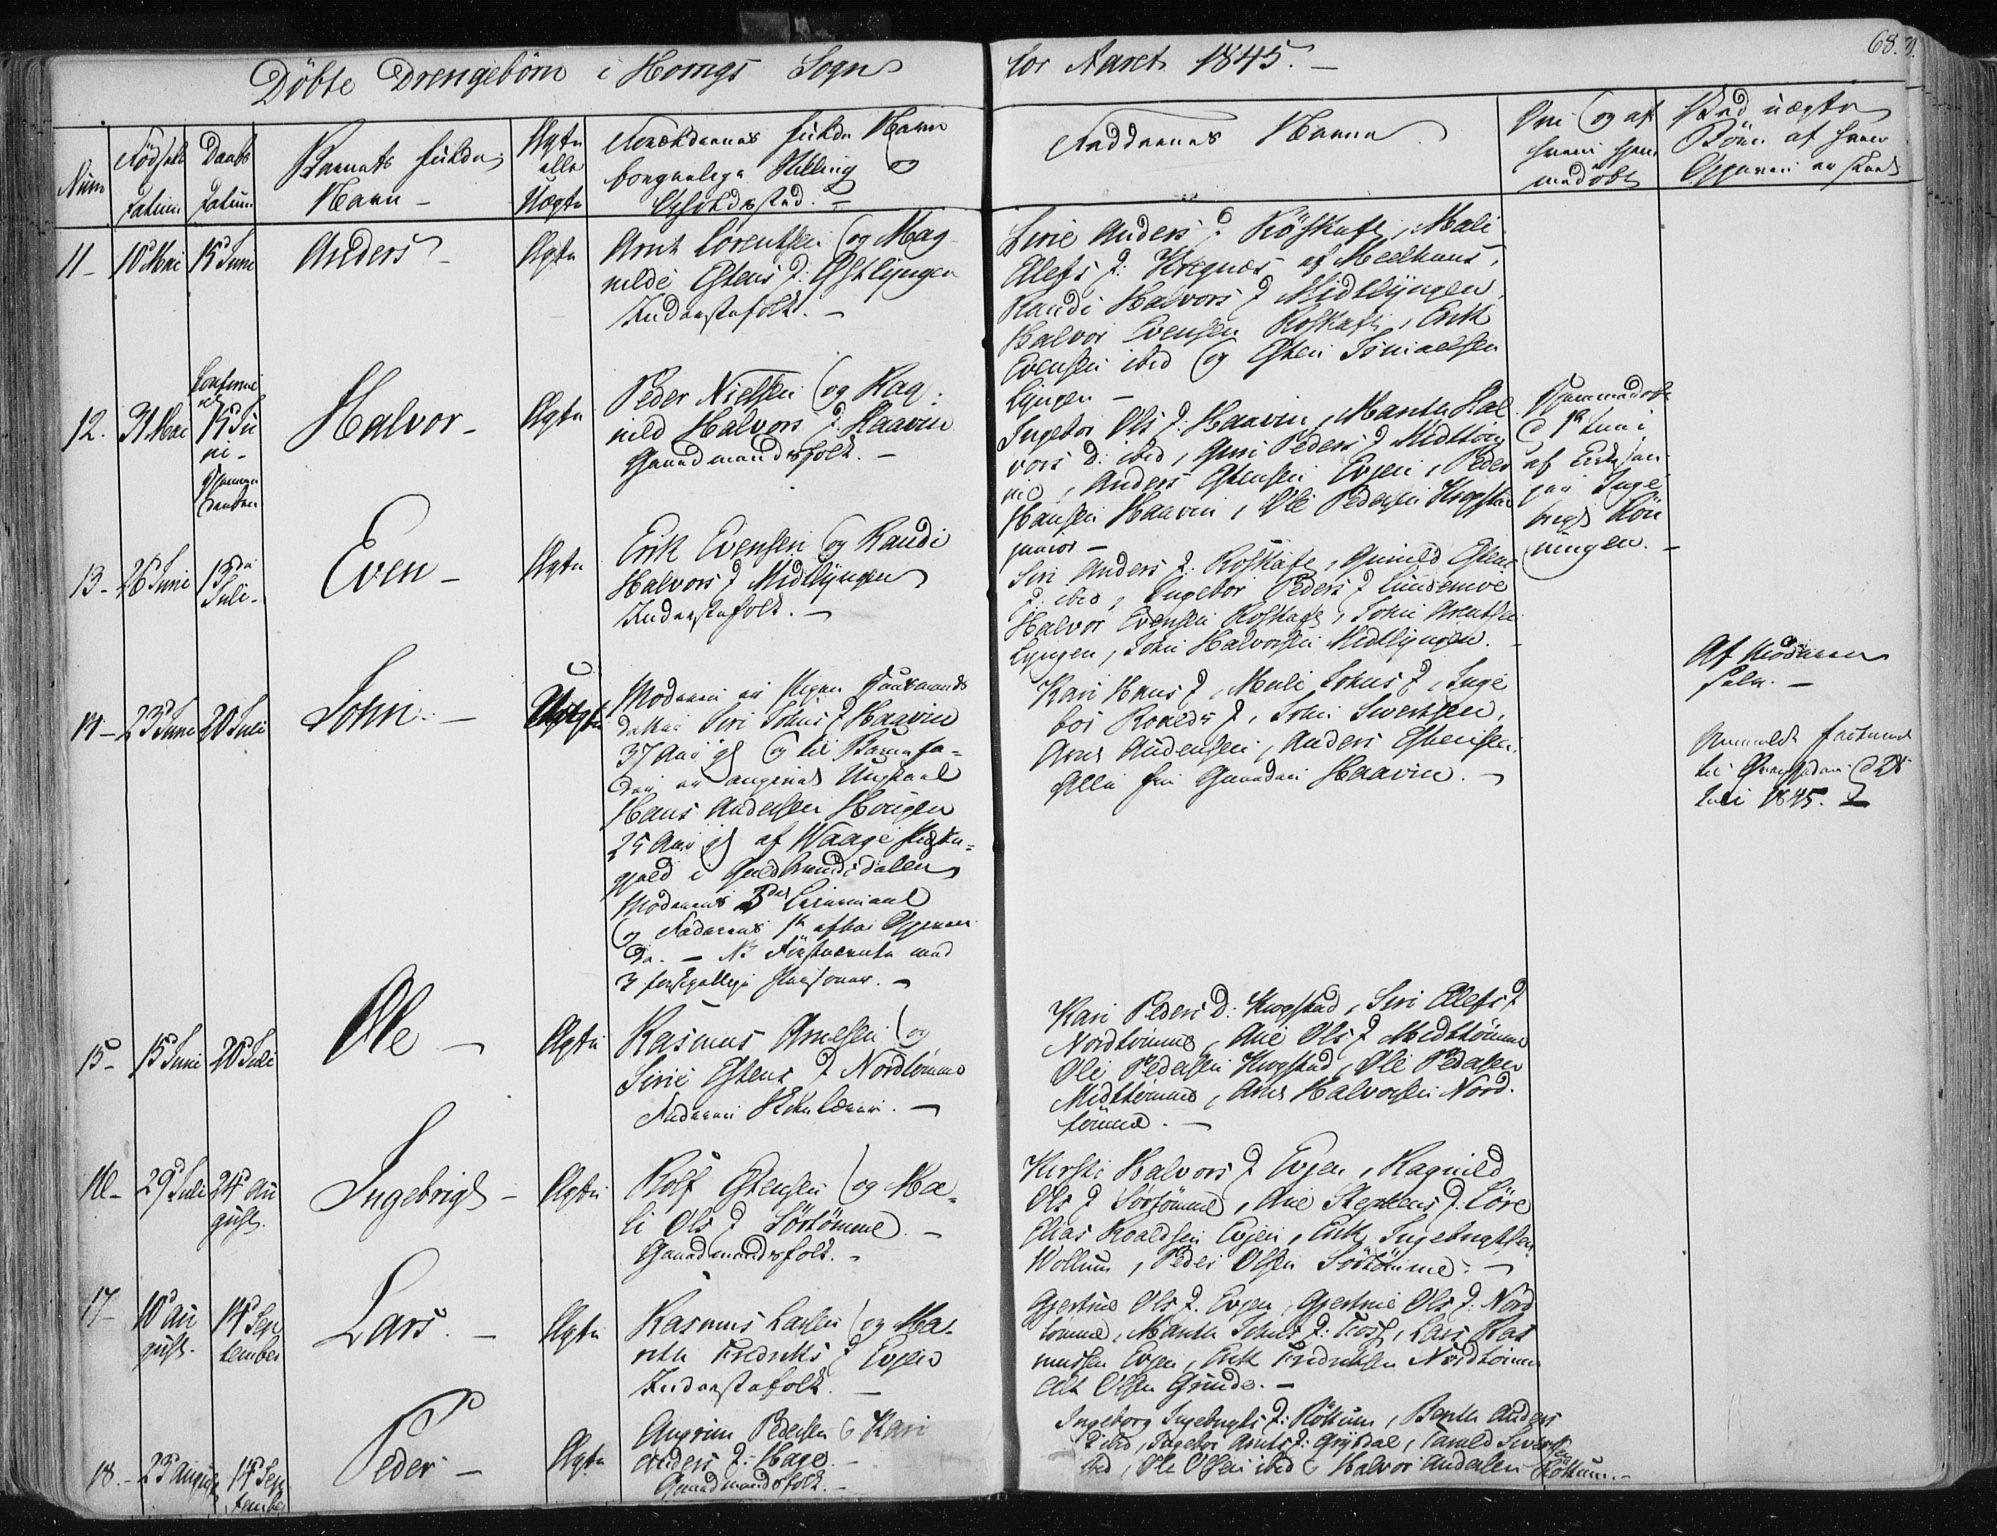 Döbte Drengebörn i Horrigs Sogn for Aaret 1845. —
68.
Num
Födsels Datum
Daabs Datum
Barnets fulde Navn —
Ægte eller Uægte
Forældrenes fulde Navn og
borgerlige Stilling
Opholdssted. —
Faddernes Navne
Om og af hvem hjemmedöbt
Ved uægte Börn af hvem Opgaven er skeed
11 —
10 Mai
15 Juni
Anders —
Ægte
Arnt Lorentsen og Mag
nilde Estens D: Östlyngen
Inderstefolk. —
Sirie Anders D Röskaft, Mali
Elefs D: Kregnæs af Meelhuus,
Randi Halvors D Midtlyngen,
Halvor Evensen Roskaft, Erik
Evensen ibid og Esten Ismaelsen
Lyngen —
12.
31 Mai
Confirme
ret
15 Ju
ni —
Hjemme
daaben
Halvor —
Ægte
Peder Nielsen og Rag:
nild Halvors D Haavin
Gaardmandsfolk. —
Ingebor Ols D: Haavin, Marith Hal
vors D: ibid, Guri Peders D Midttöm
me, Anders Estensen Evjen, Peder
Hansen Haavin, Ole Pedersen Krogstad
junior —
Hjemmedöbt
d 1st Juni
af Kirkesan
ger Inge
brigt Kön
ningen. —
13 —
26 Juni
13de
Juli —
Even —
Ægte
Erik Evensen og Randi
Halvors D Midtlyngen
Inderstefolk. —
Siri Anders D: Roskaft, Gunild Estens
D. ibid, Ingebor Peders D Lundemoe
Halvor Evensen Roskaft, John Arentsen
Lyngen, John Halvorsen Midtlyngen. —
14 —
23 Juni
20 Juli
John. —
Uægte
Moderen er Pigen Gaardmands
datter Siri Johns D Haavin
37 Aar gl og til Barnefa-
der er angivet Ungkarl
Hans Andersen Horigen
25 Aar gl af Waage Præste-
gjeld i Guldbrandsdalen
Moderens 3die Leiermaal
og Faderens 1ste efter Opgiven
de. —
3 forskjellige Personer. —
Kari Hans D, Mali Johns D, Inge
bor Roalds D, John Sivertsen,
Arnt Audensen, Anders Estensen.
Alle fra Gaarden Haavin. —
Af Moderen
selv. —
Anmeldt
til
Juli 1845.
15 —
15 Juni
20 Juli
Ole —
Ægte
Rasmus Arnesen og
Sirie Estens D Nordtömme
Faderen Skolelærer. —
Kari Peders D: Krogstad, Siri Elefs D
Nordtömme, Ane Ols D Midttömme
Ole Pedersen Krogstad, Ole Pedersen
Midttömme, Arnt Halvorsen Nord-
tömme. —
16 —
29 Juli
24 Au
gust.
Ingebrigt —
Ægte
Rolf Estensen og Ma-
li Ols D Sörtömme —
Gaardmandsfolk. —
Kirsti Halvors D Evjen, Ragnild
Ols D Sörtömme, Ane Stephens D. Löre
Elias Roaldsen Evjen, Erik Ingebrigtsen
Wollum, Peder Olsen Sörtömme. —
17 —
10 Au
gust.
14 Sep
tember
Lars. —
Ægte
Rasmus Larsen og Ma-
rith Fredriks D Evjen
Inderstefolk. —
Gjertrue Ols D. Evjen, Gjertrue Ols D: Nord
tömme, Marith Johns D: Foss, Lars Ras
mussen Evjen, Erik Fredriksen Nordtömme
Elt Olsen Grinde. —
18. —
23 August
14 Sep
tember
Peder —
Ægte
Angrim Pedersen & Kari
Anders D: Hage. —
Gaardmandsfolk. —
Ingeborg Ingebrigts D: Köttum, Berith Anders
D ibid, Ingebor Arnts D: Grytdal, Tarald Sivertsen
ibid, Ole Olsen ibid & Halvor Andersen Kottum. —